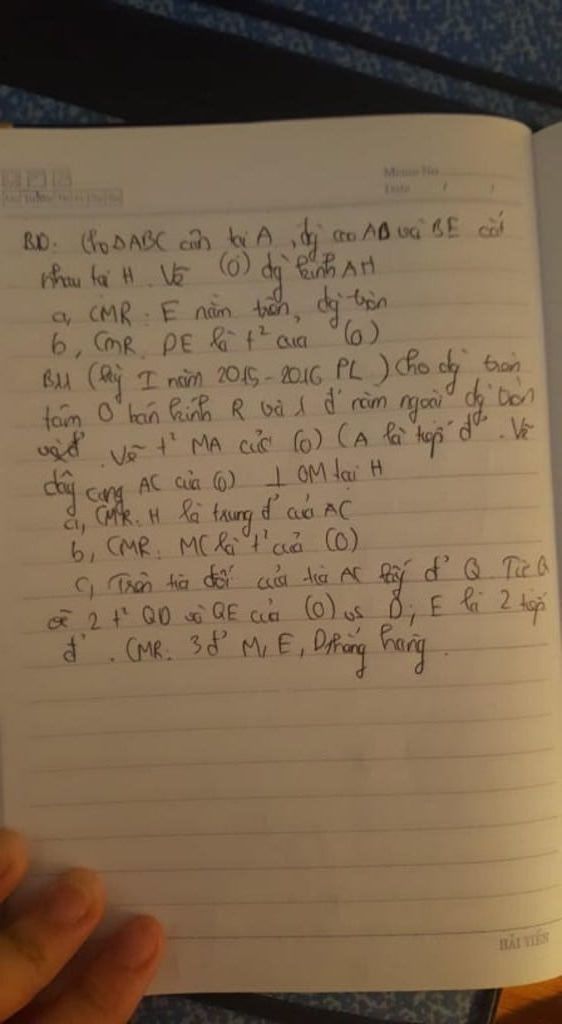 Memo No
Date / /
B10. Cho ΔABC cân tại A, đg cao AD và BE cắt
nhau tại H. Vẽ (O) đg kính AH
a, CMR: E nằm trên đg tròn
b, CMR: DE là t² của (O)
B11 (kỳ I năm 2015-2016 PL) Cho đg tròn
tâm O bán kính R và 1 đ' nằm ngoài đg tròn
Vẽ t² MA của (O) (A là tiếp đ'. Vẽ
dây cung AC của (O) ⊥ OM tại H
a, CMR: H là trung đ' của AC
b, CMR: MC là t² của (O)
c, Trên tia đối của tia AC lấy đ' Q. Từ Q
vẽ 2 t² QD và QE của (O) vs D, E là 2 tiếp
đ'. CMR: 3 đ' M, E, D thẳng hàng.
HẢI TIẾN